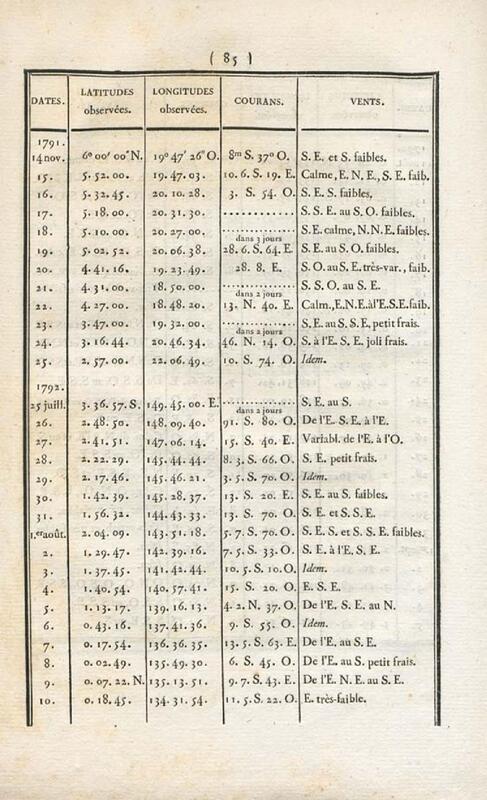 ( 85 )
DATES. LATITUDES observées. LONGITUDES observées. COURANS. VENTS.
1791.
14 nov. 6° 00' 00" N. 19° 47' 26" O. 8m S. 37° O. S. E. et S. faibles.
15. 5. 52. 00. 19. 47. 03. 10. 6. S. 19. E. Calme, E. N. E., S. E. faib.
16. 5. 32. 45. 20. 10. 28. 3. S. 54. O. S. E. S. faibles.
17. 5. 18. 00. 20. 31. 30. ............ S. S. E. au S. O. faibles.
18. 5. 10. 00. 20. 27. 00. ............ S. E. calme, N. N. E. faibles.
dans 3 jours
19. 5. 02. 52. 20. 06. 38. 28. 6. S. 64. E. S. E. au S. O. faibles.
20. 4. 41. 16. 19. 23. 49. 28. 8. E. S. O. au S. E. très-var., faib.
21. 4. 31. 00. 18. 50. 00. ............ S. S. O. au S. E.
dans 2 jours
22. 4. 27. 00. 18. 48. 20. 13. N. 40. E. Calm., E. N. E. à l'E. S. E. faib.
23. 3. 47. 00. 19. 32. 00. ............ S. E. au S. S. E, petit frais.
dans 2 jours
24. 3. 16. 44. 20. 46. 34. 46. N. 14. O. S. à l'E. S. E. joli frais.
25. 2. 57. 00. 22. 06. 49. 10. S. 74. O. Idem.
1792.
25 juill. 3. 36. 57. S. 149. 45. 00. E. ............ S. E. au S.
dans 2 jours
26. 2. 48. 50. 148. 09. 40. 91. S. 80. O. De l'E. S. E. à l'E.
27. 2. 41. 51. 147. 06. 14. 15. S. 40. E. Variabl. de l'E. à l'O.
28. 2. 22. 29. 145. 44. 44. 8. 3. S. 66. O. S. E. petit frais.
29. 2. 17. 46. 145. 46. 21. 3. 5. S. 70. O. Idem.
30. 1. 42. 39. 145. 28. 37. 13. S. 20. E. S. E. au S. faibles.
31. 1. 56. 32. 144. 43. 33. 13. S. 70. O. S. E. et S. S. E.
1.er août. 2. 04. 09. 143. 51. 18. 5. 7. S. 70. O. S. E. S. et S. S. E. faibles.
2. 1. 29. 47. 142. 39. 16. 7. 5. S. 33. O. S. E. à l'E. S. E.
3. 1. 37. 45. 141. 42. 44. 10. 5. S. 10. O. Idem.
4. 1. 40. 54. 140. 57. 41. 15. S. 20. O. E. S. E.
5. 1. 13. 17. 139. 16. 13. 4. 2. N. 37. O. De l'E. S. E. au N.
6. 0. 43. 16. 137. 41. 36. 9. S. 55. O. Idem.
7. 0. 17. 54. 136. 36. 35. 13. 5. S. 63. E. De l'E. au S. E.
8. 0. 02. 49. 135. 49. 30. 6. S. 45. O. De l'E. au S. petit frais.
9. 0. 07. 22. N. 135. 13. 51. 9. 7. S. 43. E. De l'E. N. E. au S. E.
10. 0. 18. 45. 134. 31. 54. 11. 5. S. 22. O. E. très-faible.